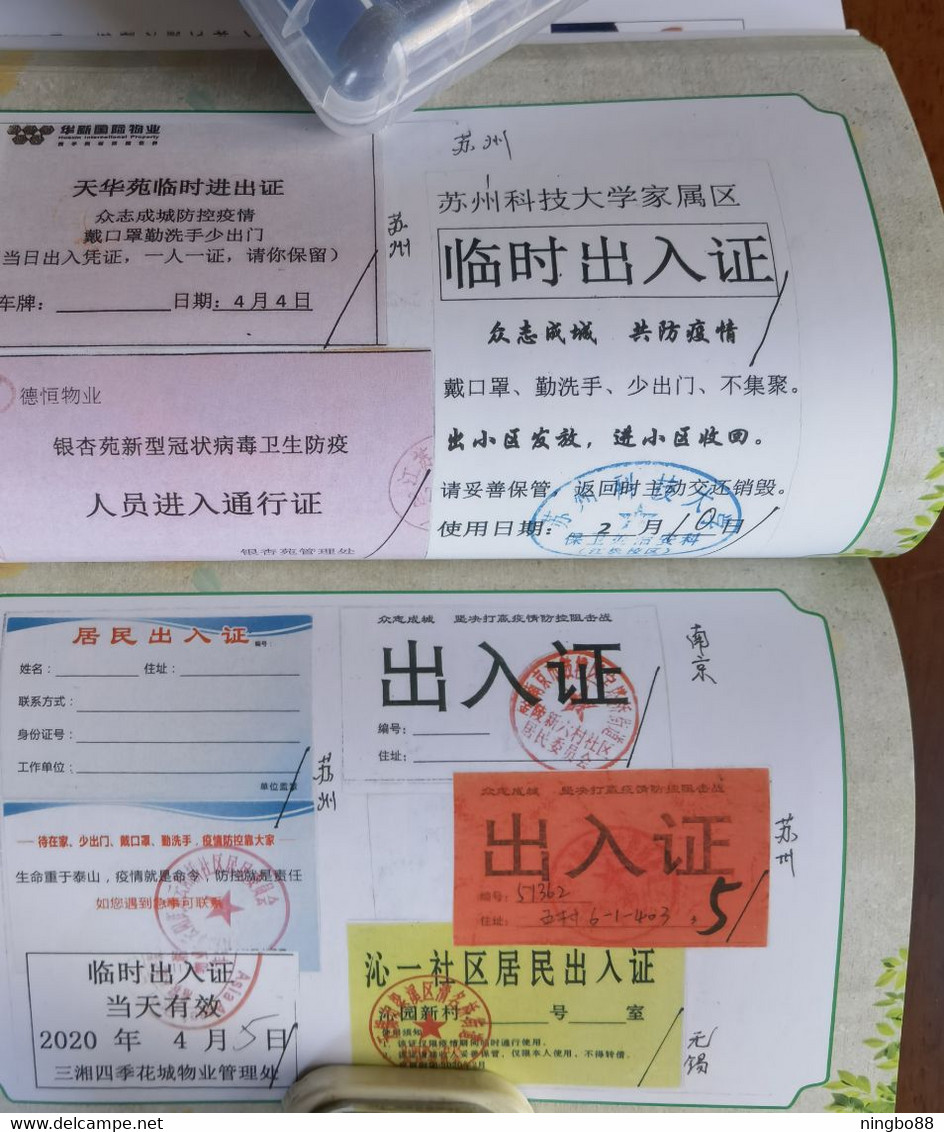 华新国际物业
Huaxin International Property
天华苑临时进出证
众志成城防控疫情
戴口罩勤洗手少出门
当日出入凭证，一人一证，请你保留）
车牌：
日期：4月4日
苏州
德恒物业
银杏苑新型冠状病毒卫生防疫
人员进入通行证
银杏苑管理处
江苏
苏州
苏州科技大学家属区
临时出入证
众志成城 共防疫情
戴口罩、勤洗手、少出门、不集聚。
出小区发放，进小区收回。
请妥善保管，返回时主动交还销毁。
使用日期： 2 月 10 日
苏州科技大
居民出入证 编号：
姓名： 住址：
联系方式：
身份证号：
工作单位：
单位盖章
苏州
待在家、少出门、戴口罩、勤洗手，疫情防控靠大家
生命重于泰山，疫情就是命令，防控就是责任
如您遇到急事可联系
临时出入证
当天有效
2020 年 4 月 5 日
三湘四季花城物业管理处
众志成城 坚决打赢疫情防控阻击战
出入证
编号：
住址：
新六村社区
居民委员会
南京
众志成城 坚决打赢疫情防控阻击战
出入证
编号：51362
住址：五村 6-1-403
5
苏州
沁一社区居民出入证
沁园新村 号 室
使用须知
该证仅限疫情期间临时通行使用。
该证请领证人妥善保管，仅限本人使用，不得转借。
无锡
ningbo88